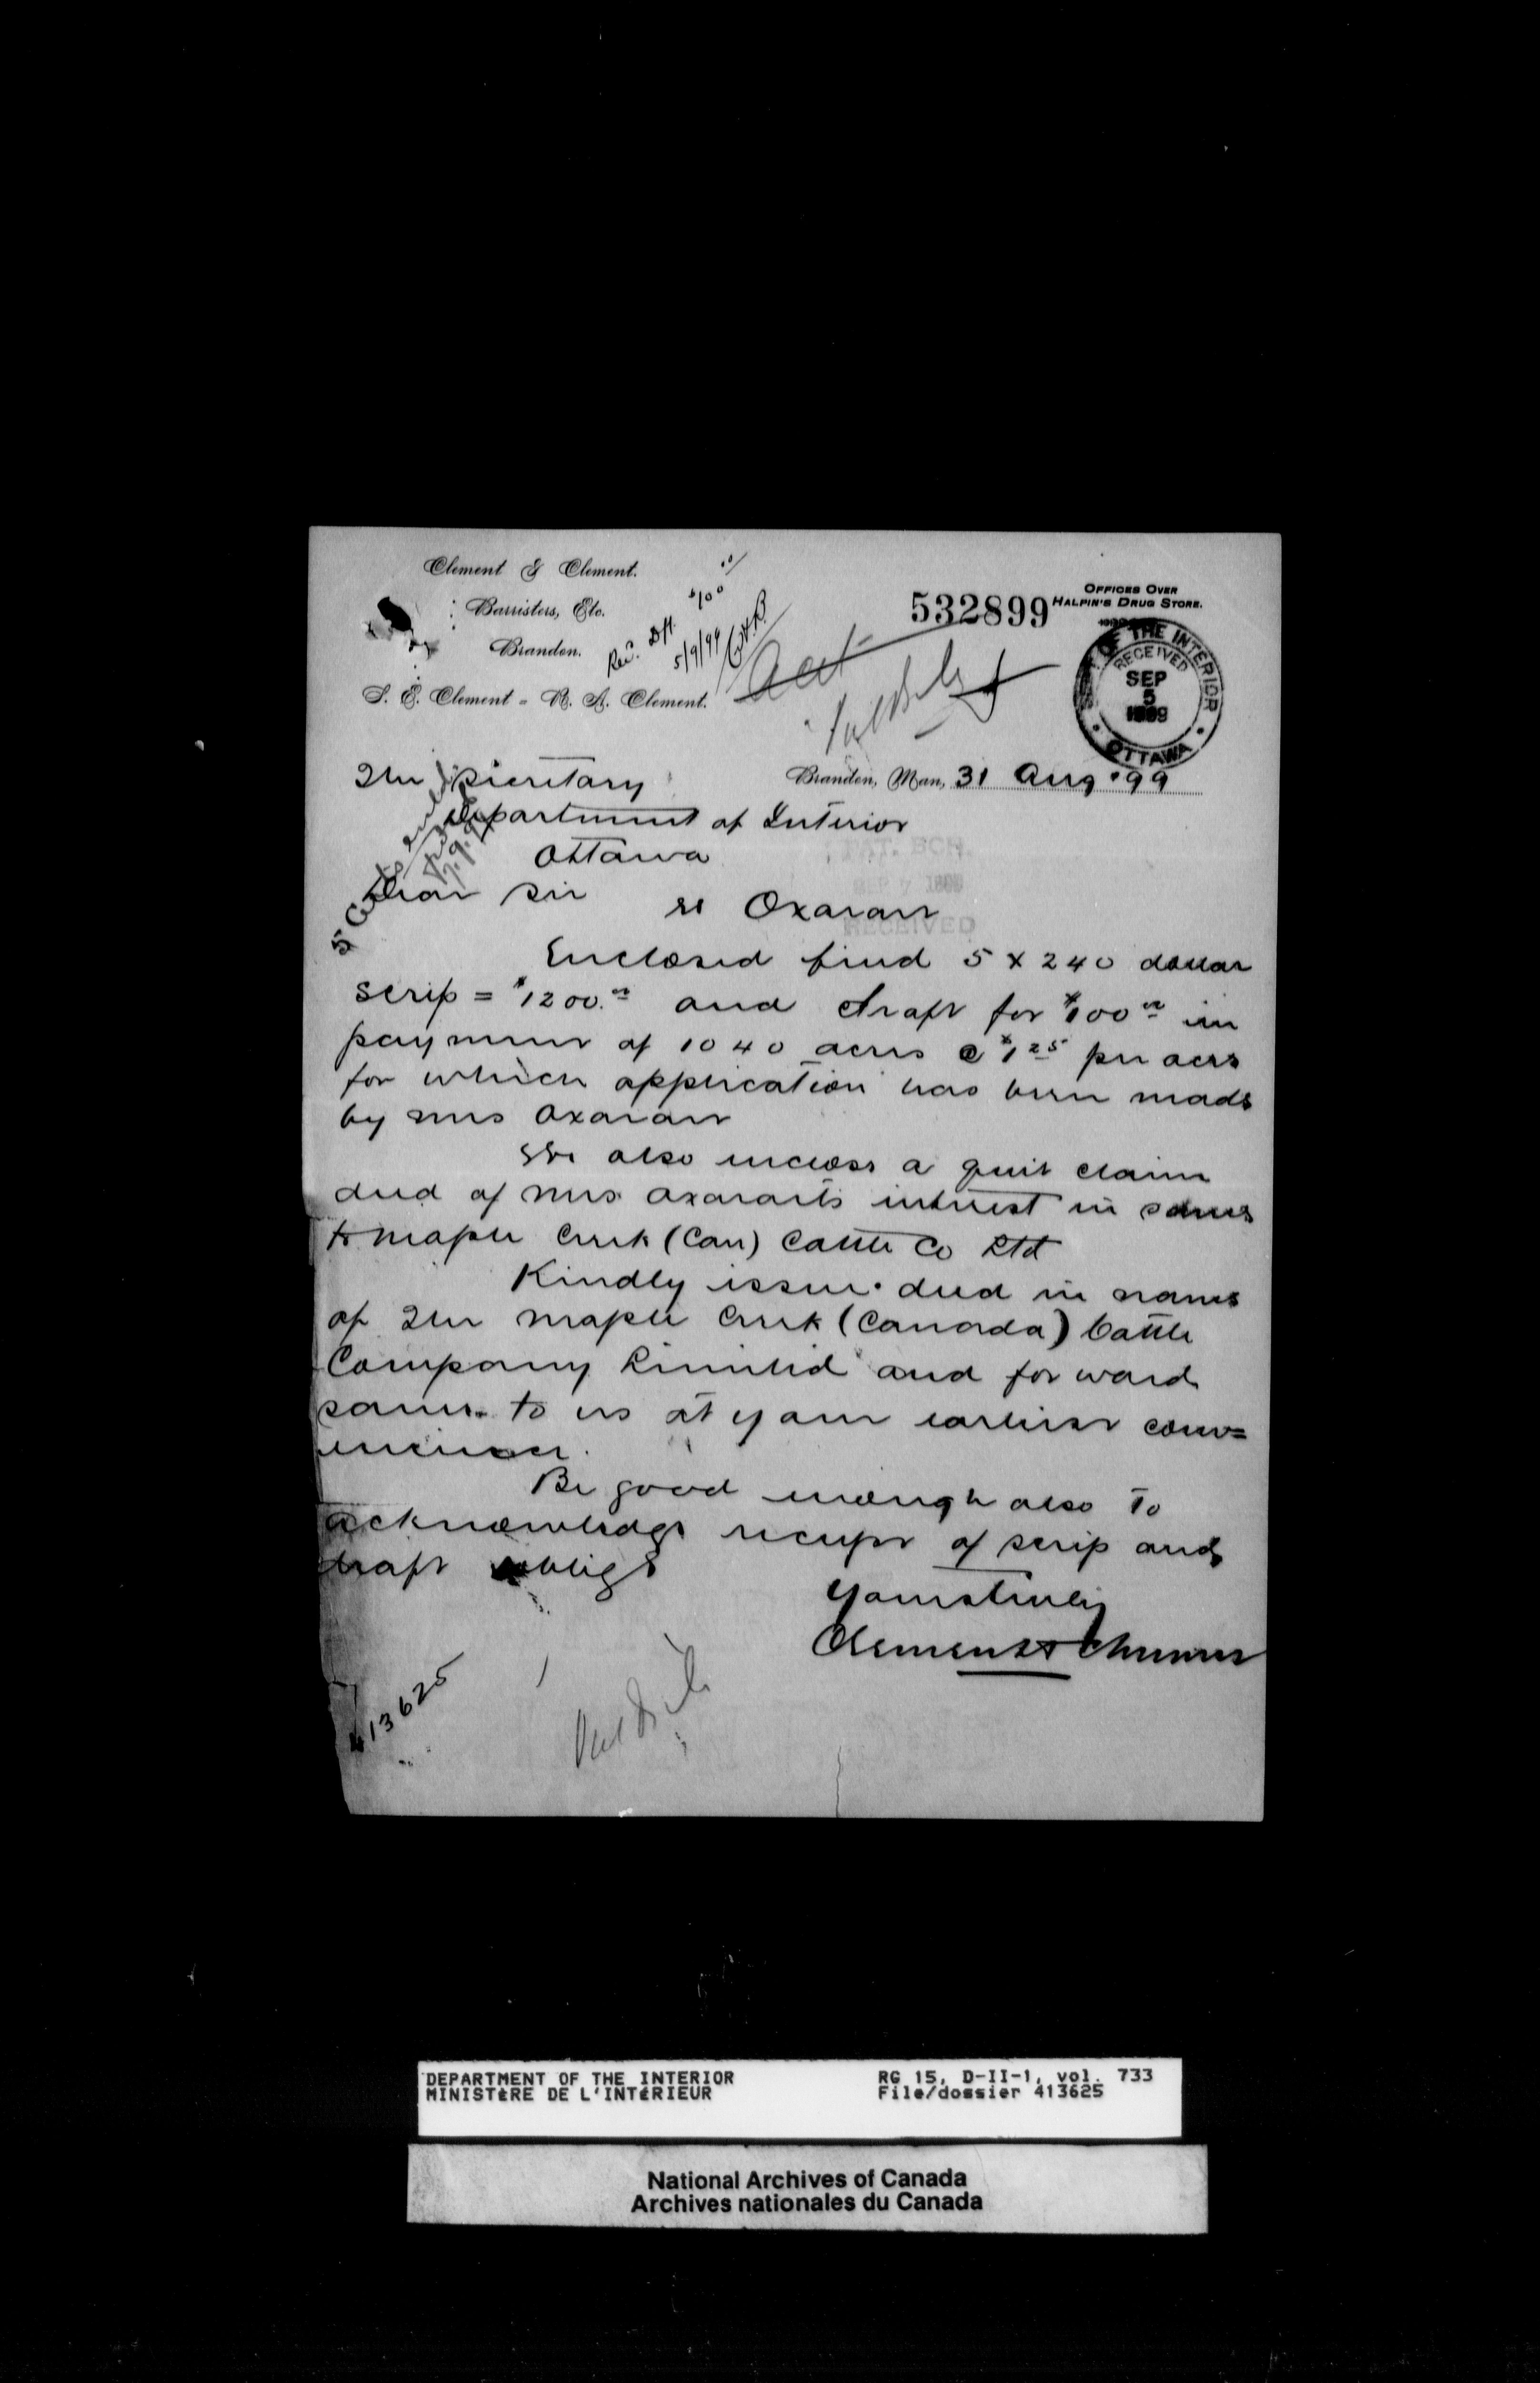 Clement & Clement.
Barristers, Etc.
Brandon.
S. E. Clement - R. A. Clement.
Rec. Dft. $100 00/
5/9/99
532899
OFFICES OVER
HALPIN'S DRUG STORE.
OF THE INTERIOR
RECEIVED
SEP
5
1899
OTTAWA
Brandon, Man, 31 Aug '99
The Secretary
Department of Interior
Ottawa
PAT. BCH.
SEP 7 1899
RECEIVED
Dear Sir
re Oxarart
Enclosed find 5 x 240 dollar
scrip = $1200.00 and draft for $100 00 in
payment of 1040 acres @ $1 25 per acre
for which application has been made
by Mrs Oxarart
We also enclose a quit claim
deed of Mrs Oxarart's interest in same
to Maple Creek (Can) Cattle Co Ltd
Kindly issue deed in name
of The Maple Creek (Canada) Cattle
Company Limited and forward
same to us at your earliest conv=
enience.
Be good enough also to
acknowledge receipt of scrip and
draft & oblige
Yours truly
Clement & Clement
413625
DEPARTMENT OF THE INTERIOR
MINISTÈRE DE L'INTÉRIEUR
RG 15, D-II-1, vol. 733
File/dossier 413625
National Archives of Canada
Archives nationales du Canada